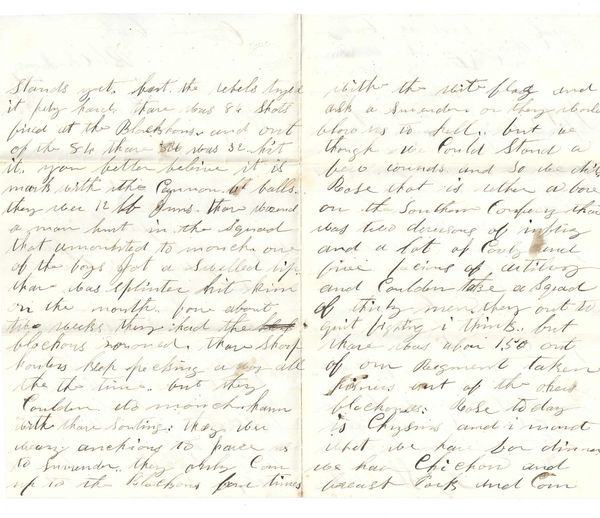 Stands yet. but the rebels tryed
it prty hard. thare was 84 shots
fired at the Blockhous. and out
of the 84 thare was 32 hit
it. you better beleive it is
mark with the Cannon balls.
they wer 12 lb guns. thare
a man hurt in the Squad
that amounted to mouch. one
of the boys got a Swelled lip.
thar was splinter hit him
on the mouth. fore about
two weeks they had the
blockhous surouned. thare sharp
Shouters keep pecking a way all
the the time. but they
Coulden do mouch harm
with thare Shuting. they wer
anctions to force us
to Surrender. they only Com
up to the Blockhous fore times
with the wite flag and
ask a Surender or they would
blow us to hell. but we
though we Could Stand a
few rounds and So we did.
Rose that is rether a bore
on the Southern Confersy thare
was two devisons of infintry
and a lot of Cavlry and
five peices of artilery
and Coulden take a Squad
of thirty men. they out to
quit fighting i think. but
thare was about 150 out
of our Regment taken
prisners out of the others
blockhouses. Rose today
is Chrysmas and i
what we have for dinner
we had Chicken and
breast Pork and Corn